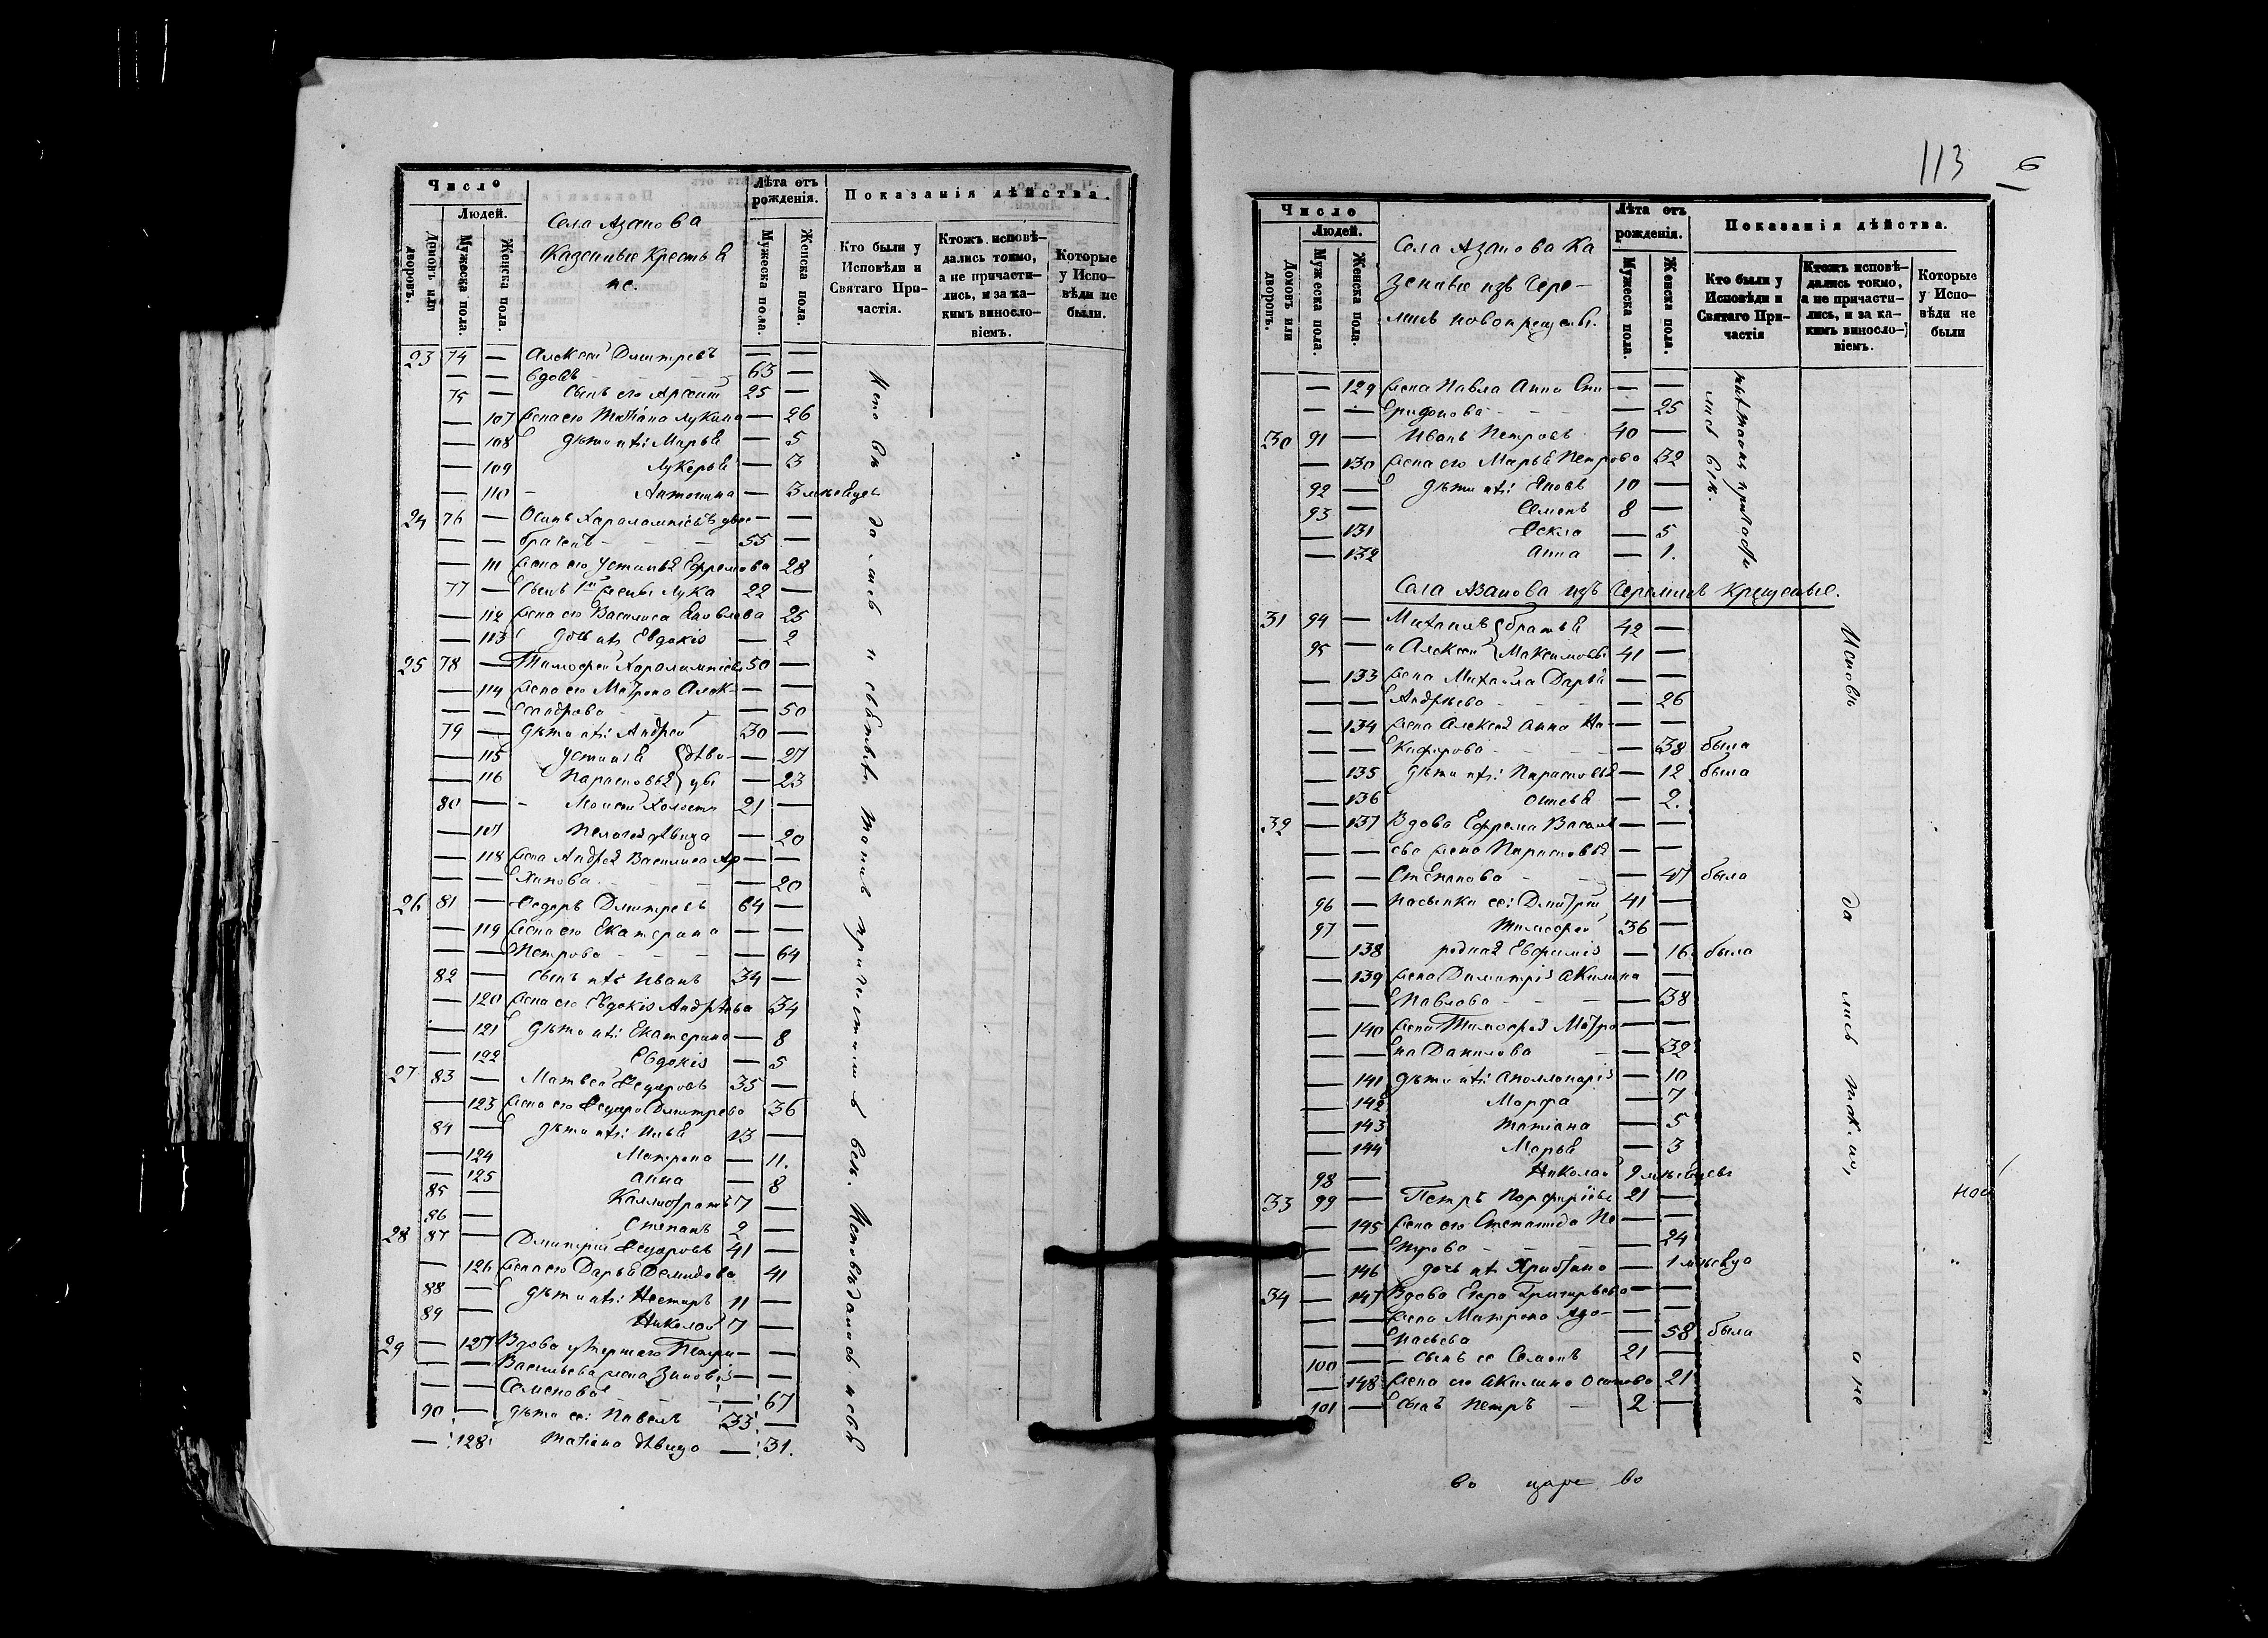 Число
Лѣта отъ рожденія.
Показанія дѣйства.
Людей.
Домовъ или дворовъ.
Мужеска пола.
Женска пола.
Села Азанова
Казенные крестья
не.
Мужеска пола.
Женска пола.
Кто были у Исповѣди и Святаго Причастія.
Ктожъ исповѣдались токмо, а не причастились, и за какимъ винословіемъ.
Которые у Исповѣди не были.
23 74 — Алексей Дмитревъ — —
— — вдовъ — — 63 —
75 — Сынъ его Арсений 25 —
— 107 жена его Татіана Лукина — 26
— 108 дѣти ихъ: Марья — 5
— 109 Лукерья — 3
— 110 Антонина — 3 месяцъ
24 76 — Осипъ Харалампіевъ — —
— — браченъ — — 55 —
— 111 жена его Устинья Ефремова 28
77 — Сынъ 1й жены Лука 22 —
— 112 жена его Василиса Яковлева 25
— 113 дочь ихъ Евдокія — 2
25 78 — Тимофей Харалампіевъ 50 —
— 114 жена его Матрона Алек- — —
— — сандрова — — 50
79 — дѣти ихъ: Андрей 30 —
— 115 Устинья дѣви- — 27
— 116 Парасковья цы — 23
80 — Моисей холостъ 21 —
— 117 Пелагея дѣвица — 20
— 118 жена Андрея Василиса Ар — —
— — хипова — — 20
26 81 — Федоръ Дмитревъ 64 —
— 119 жена его Екатерина — —
— — Петрова — — 64
82 — сынъ ихъ Иванъ 34 —
— 120 жена его Евдокія Андрѣева 34
— 121 дѣти ихъ: Екатерина — 8
— 122 Евдокія — 5
27 83 — Матвей Федоровъ 35 —
— 123 жена его Федора Дмитрева 36
84 — дѣти ихъ: Илья 13 —
— 124 Матрена — 11.
— 125 Анна — 8
85 — Каллистратъ 7 —
86 — Степанъ 2 —
28 87 — Дмитрій Федоровъ 41 —
— 126 жена его Дарья Демидова 41
88 — дѣти ихъ: Несторъ 11 —
89 — Николай 7 —
29 — 127 Вдова умершаго Петра — —
— — Васильева жена Зиновія — —
— — Семенова — — 67
90 — дѣти ее: Павелъ 33 —
— 128 Татіана дѣвица — 31.
Исповѣдались и святыхъ таинъ причастились всѣ. Исповѣдались и свя
113 6
Число
Лѣта отъ рожденія.
Показанія дѣйства.
Людей.
Домовъ или дворовъ.
Мужеска пола.
Женска пола.
Села Азанова Ка
зенные изъ Чере-
мисъ новокрещены.
Мужеска пола.
Женска пола.
Кто были у Исповѣди и Святаго Причастія
Ктожъ исповѣдались токмо, а не причастились, и за какимъ винословіемъ.
Которые у Исповѣди не были
— 129 жена Павла Анна Спи- — —
— — ридонова — — 25
30 91 — Иванъ Петровъ 40 —
— 130 жена его Марья Петрова 32
92 — дѣти ихъ: Яковъ 10 —
93 — Семенъ 8 —
— 131 Фекла — 5
— 132 Анна — 1.
тыхъ таинъ причасти
лись всѣ.
Села Азанова изъ Черемисъ крещеные.
31 94 — Михаилъ братья 42 —
95 — и Алексей Максимовы 41 —
— 133 жена Михаила Дарья — —
— — Андрѣева — — 26
— 134 жена Алексея Анна Ни- — —
— — кифорова — — 38 была
— 135 дѣти ихъ: Парасковья — 12 была
— 136 — 2.
32 — 137 Вдова Ефрема Василь — —
— — ева жена Парасковья — —
— — Степанова — — 47 была
96 — пасынки ее: Дмитрій 41 —
97 — Тимофей 36 —
— 138 родная Евфимія — 16 была
— 139 жена Димитрія Акилина —
— — Павлова — — 38
— 140 жена Тимофея Матро — —
— — на Данилова — — 32
— 141 дѣти ихъ: Аполлонарія — 10
— 142 Марфа — 7
— 143 Татіана — 5
— 144 Марья — 3
98 — Николай 9 месяцевъ
33 99 — Петръ Порфиріевъ 21 —
— 145 жена его Степанида Пе — —
— — трова — — 24
— 146 дочь ихъ Христина — 1 месяца
34 — 147 Вдова Егора Григорьева — —
— — жена Матрона Афо- — —
— — насьева — 58 была
100 — сынъ ее Семенъ 21 —
— 148 жена его Акилина Осипова 21
101 — сынъ Петръ — 2 —
Исповѣ да лись токмо, а не
во